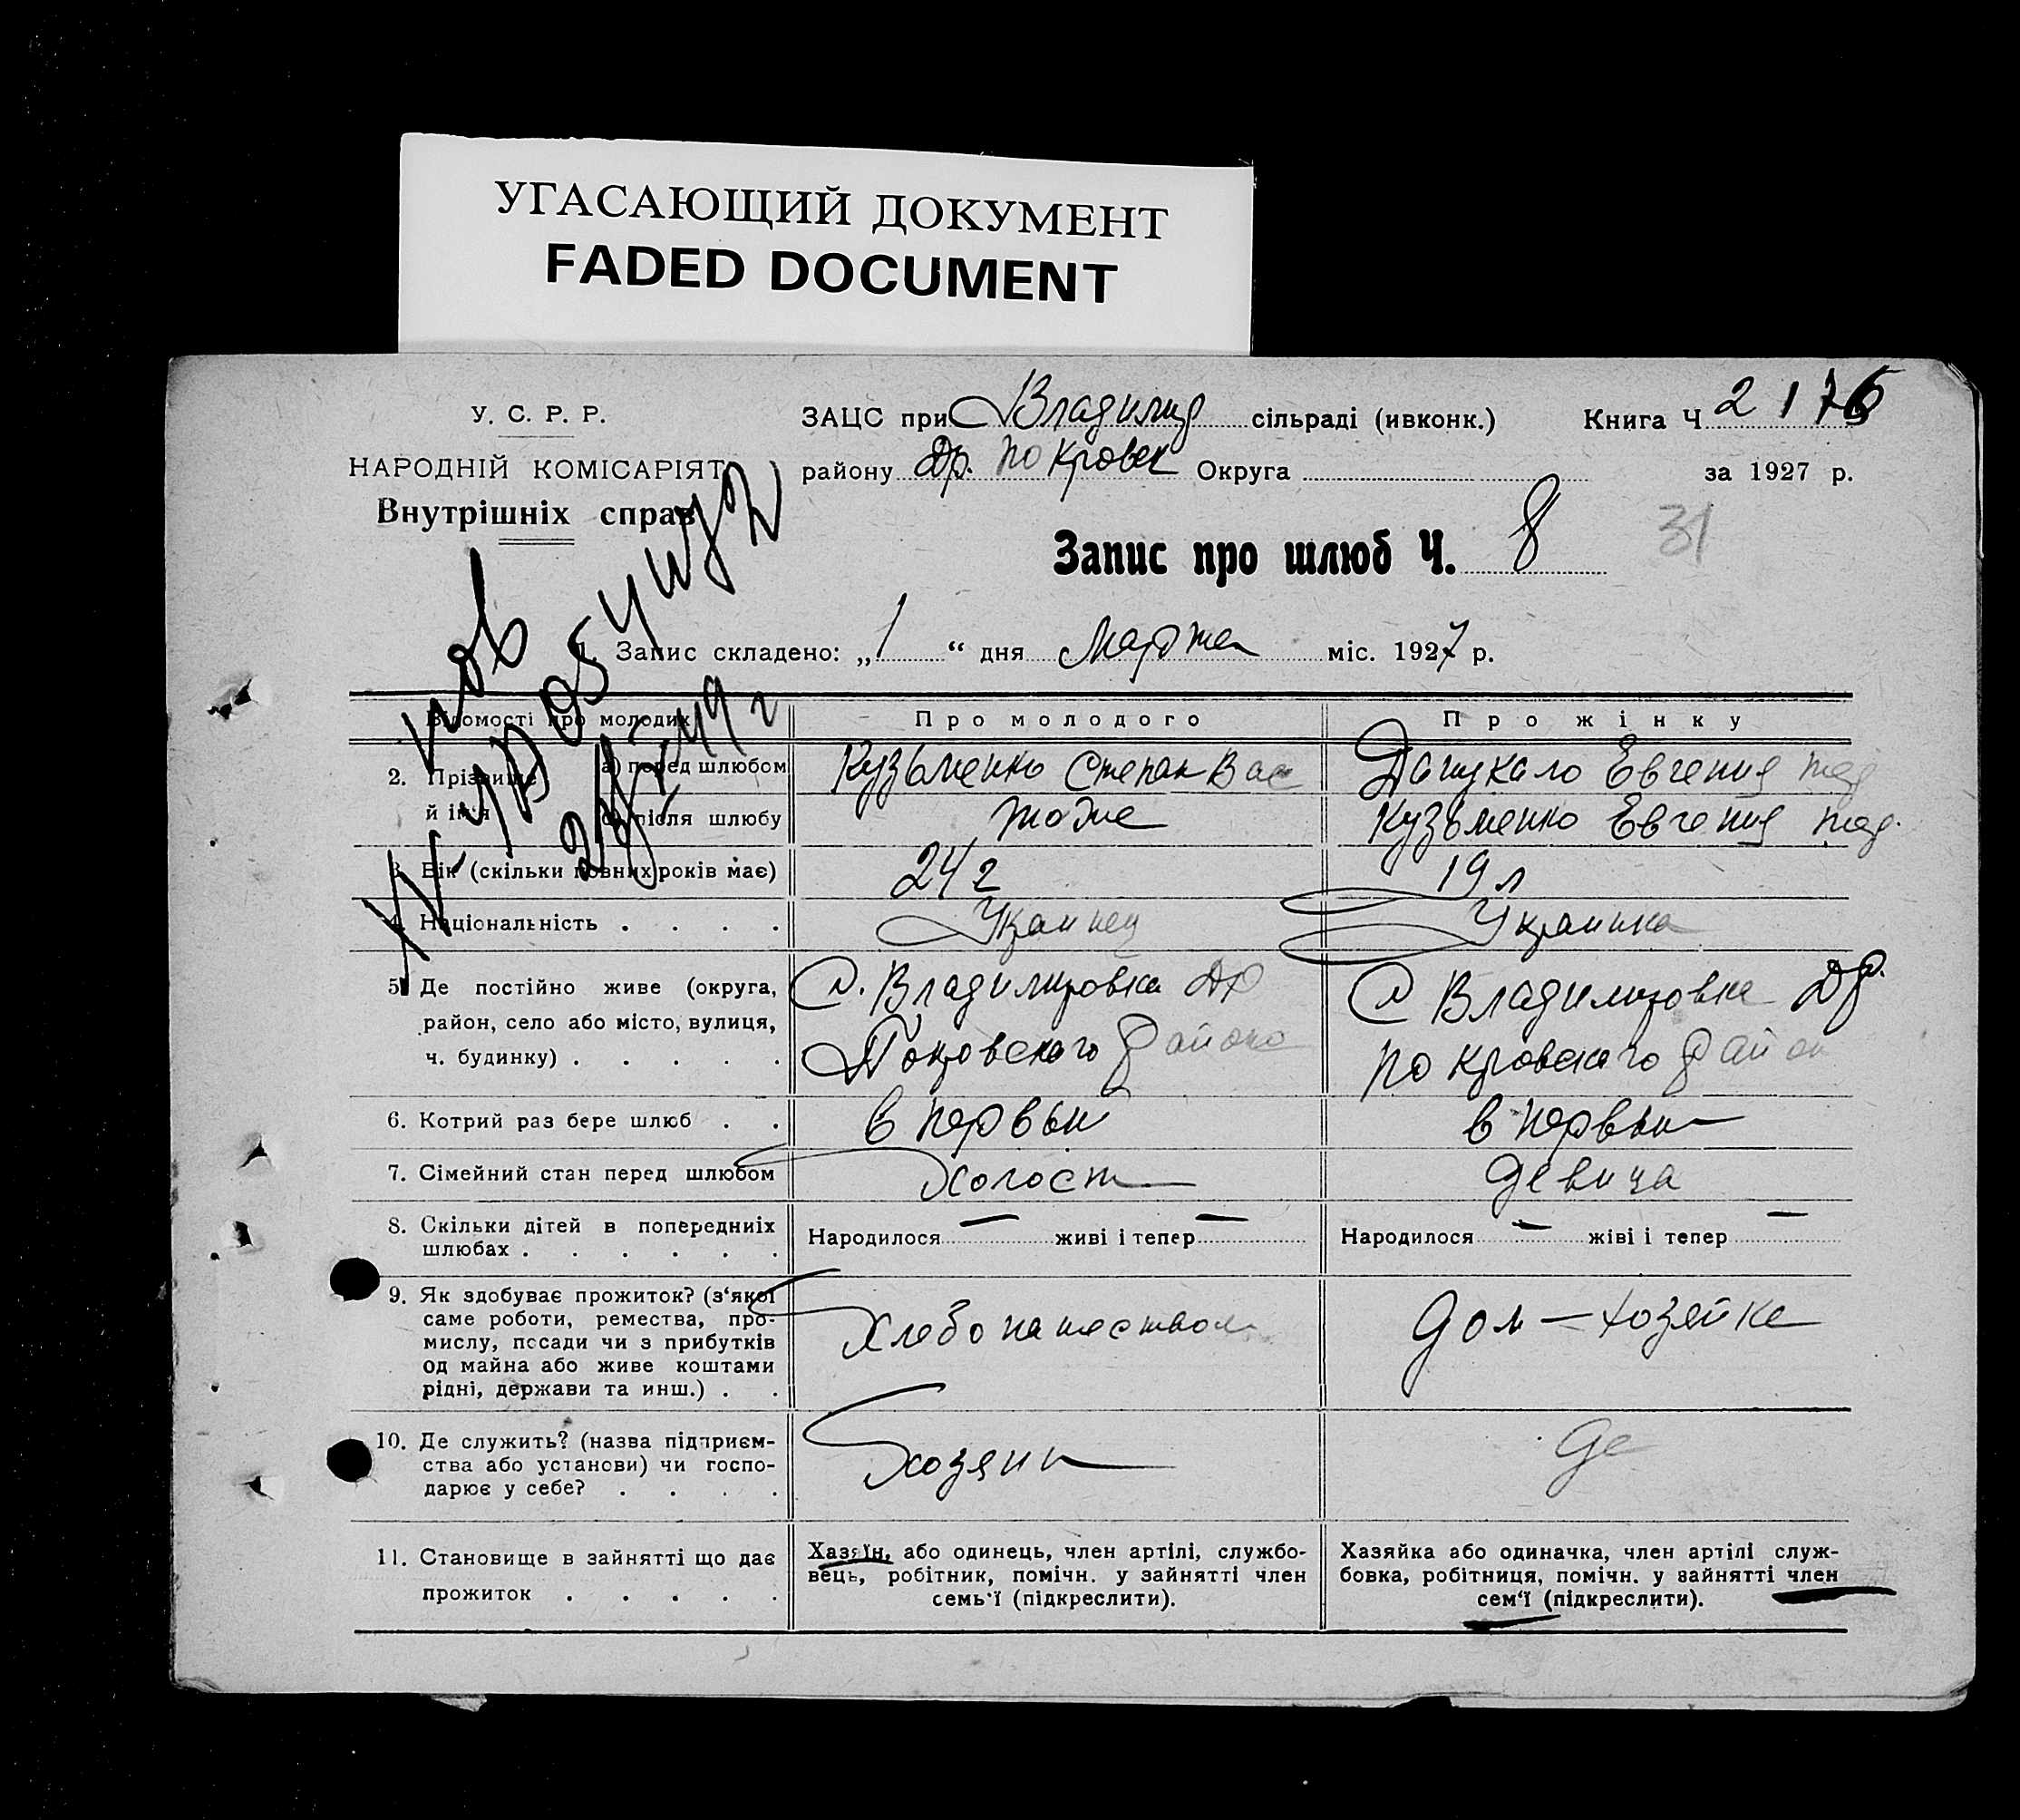 УГАСАЮЩИЙ ДОКУМЕНТ
FADED DOCUMENT
У. С. Р. Р.
НАРОДНІЙ КОМІСАРІЯТ
Внутрішніх справ
ЗАЦС при Владимир сільраді (ивконк.)
Книга Ч 2
району Др. Покровск Округа
за 1927 р.
Запис про шлюб Ч. 8
31
1. Запис складено: „1“ дня Марта міс. 1927 р.
Відомості про молодих
Про молодого
Про жінку
2. Прізвище й ім'я
а) перед шлюбом
Кузьменко Степан Вас
Евгения
після шлюбу
тоже
Кузьменко Евгения
3. Вік (скільки повних років має)
24 г
19 л
4. Національність . . . .
Украинец
Украинка
5. Де постійно живе (округа,
район, село або місто, вулиця,
ч. будинку) . . . . .
с. Владимировка Др
Покровского района
с Владимировка Др.
Покровского район
6. Котрий раз бере шлюб . .
в первый
в первый
7. Сімейний стан перед шлюбом
Холост
девица
8. Скільки дітей в попередниіх
шлюбах . . . . . .
Народилося — живі і тепер —
Народилося — жіві і тепер —
9. Як здобуває прожиток? (з‘якої
саме роботи, ремества, про-
мислу, посади чи з прибутків
од майна або живе коштами
рідні, держави та инш.) . .
Хлебопашеством
дом — хозяйка
10. Де служить? (назва підприєм-
ства або установи) чи госпо-
дарює у себе? . . . .
Хозяин
11. Становище в зайнятті що дає
прожиток . . . . .
Хазяїн, або одинець, член артілі, службо-
вець, робітник, помічн. у зайнятті член
семь‘ї (підкреслити).
Хазяйка або одиначка, член артілі служ-
бовка, робітниця, помічн. у зайнятті член
сем‘ї (підкреслити).